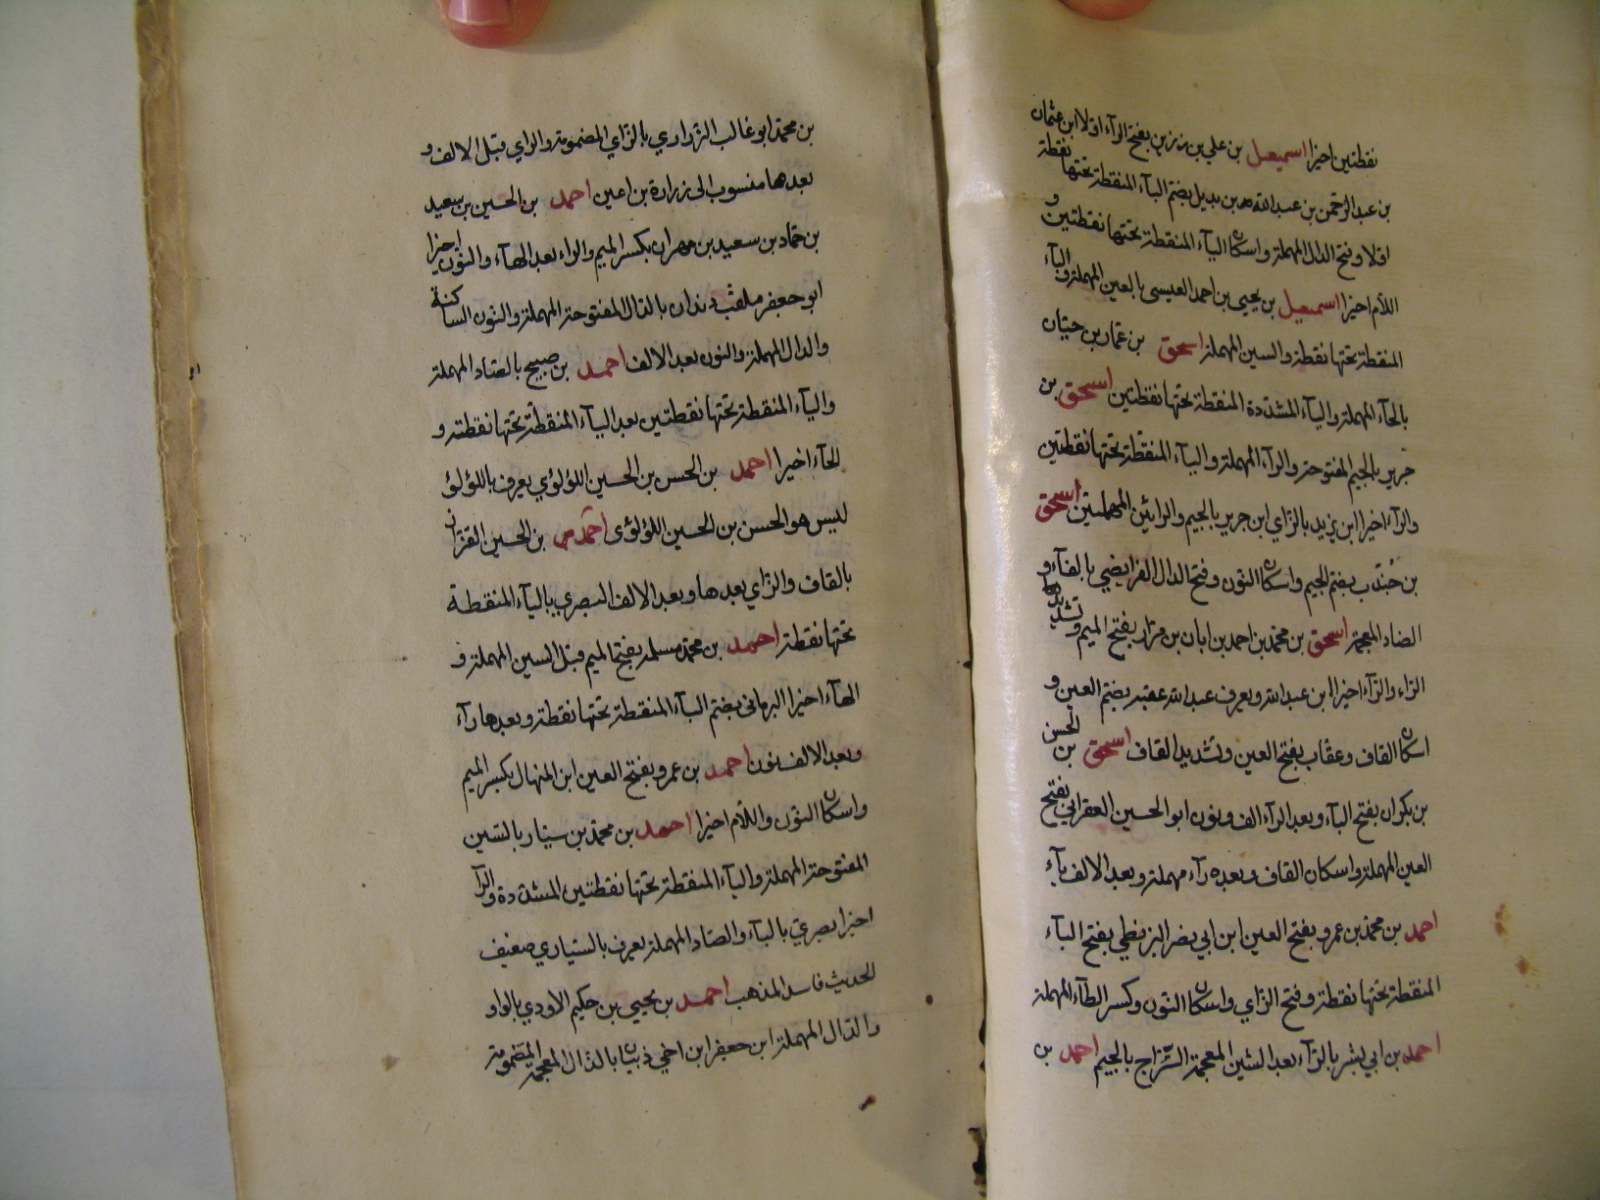 نقطتين اخيرا اسمعيل بن علي بن رزين بفتح الراء اولا ابن عثمان
بن عبد الرحمن بن عبد الله بن بديل بضم الباء المنقطة تحتها نقطة
اولا وفتح الدال المهملة واسكان الياء المنقطة تحتها نقطتين و
اللام اخيرا اسمعيل بن يحيى بن احمد العبسى بالعين المهملة والباء
المنقطة تحتها نقطة والسين المهملة اسحق بن عمار بن حيان
بالحاء المهملة والياء المشددة المنقطة تحتها نقطتين اسحق بن
جرير بالجيم المفتوحة والراء المهملة والياء المنقطة تحتها نقطتين
والراء اخيرا ابن يزيد بالزاي ابن جرير بالجيم والرائين المهملتين اسحق
بن جندب بضم الجيم واسكان النون وفتح الدال الفرايضي بالفاء و
الضاد المعجمة اسحق بن محمد بن احمد بن ابان بن مرار بفتح الميم وتشديد
الراء والراء اخيرا ابن عبد الله ويعرف عبد الله عقبة بضم العين و
اسكان القاف وعقاب بفتح العين وتشديد القاف اسحق بن الحسن
بن بكران بفتح الباء وبعد الراء الف ونون ابو الحسين العقرابي بفتح
العين المهملة واسكان القاف وبعده راء مهملة وبعد الالف باء
احمد بن محمد بن عمرو بفتح العين ابن ابي نصر البزنطي بفتح الباء
المنقطة تحتها نقطة وفتح الزاي واسكان النون وكسر الطاء المهملة
احمد بن ابي بشر بالراء بعد الشين المعجمة السراج بالجيم احمد بن
بن محمد ابو غالب الزراري بالزاي المضمومة والراي قبل الالف و
بعدها منسوب الى زرارة بن اعين احمد بن الحسين بن سعيد
بن حماد بن سعيد بن مهران بكسر الميم والراء بعد الهاء والنون اخيرا
ابو جعفر ملقب دندان بالدال المفتوحة المهملة والنون الساكنة
والدال المهملة والنون بعد الالف احمد بن صبيح بالصاد المهملة
والياء المنقطة تحتها نقطتين بعد الباء المنقطة تحتها نقطة و
الحاء اخيرا احمد بن الحسن بن الحسين اللؤلؤي يعرف باللؤلؤ
ليس هو الحسن بن الحسين اللؤلؤى احمد بن الحسين القزاز
بالقاف والزاي بعدها وبعد الالف البصري بالباء المنقطة
تحتها نقطة احمد بن محمد مسلمة بفتح الميم قبل السين المهملة و
الهاء اخيرا البرمانى بضم الباء المنقطة تحتها نقطة وبعدها راء
وبعد الالف نون احمد بن عمرو بفتح العين ابن المنهال بكسر الميم
واسكان النون واللام اخيرا احمد بن محمد بن سيار بالسين
المفتوحة المهملة والياء المنقطة تحتها نقطتين المشددة والراء
اخيرا بصري بالباء والصاد المهملة يعرف بالسياري ضعيف
الحديث فاسد المذهب احمد بن يحيى بن حكيم الاودي بالواو
والدال المهملة ابن جعفر ابن اخي ذبيان بالذال المعجمة المضمومة